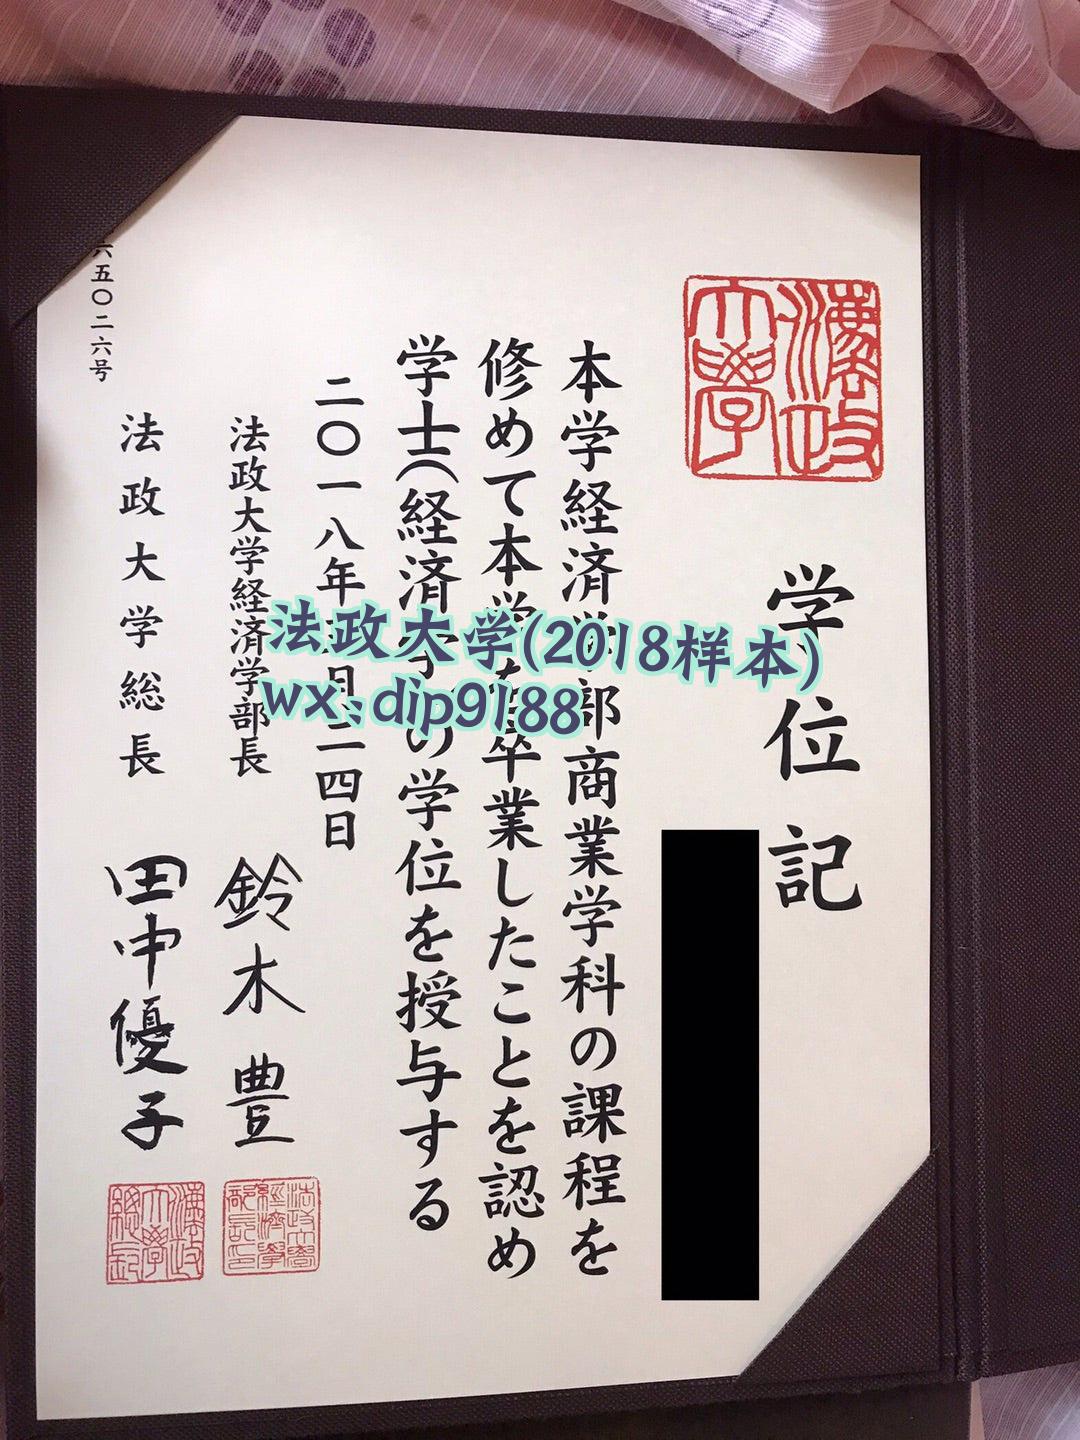 学位記
本学経済学部商業学科の課程を
修めて本学を卒業したことを認め
学士(経済学)の学位を授与する
二〇一八年三月二四日
法政大学経済学部長 鈴木豊
法政大学総長 田中優子
六五〇二六号
法政大学
法政大学(2018样本)
wx:dip9188